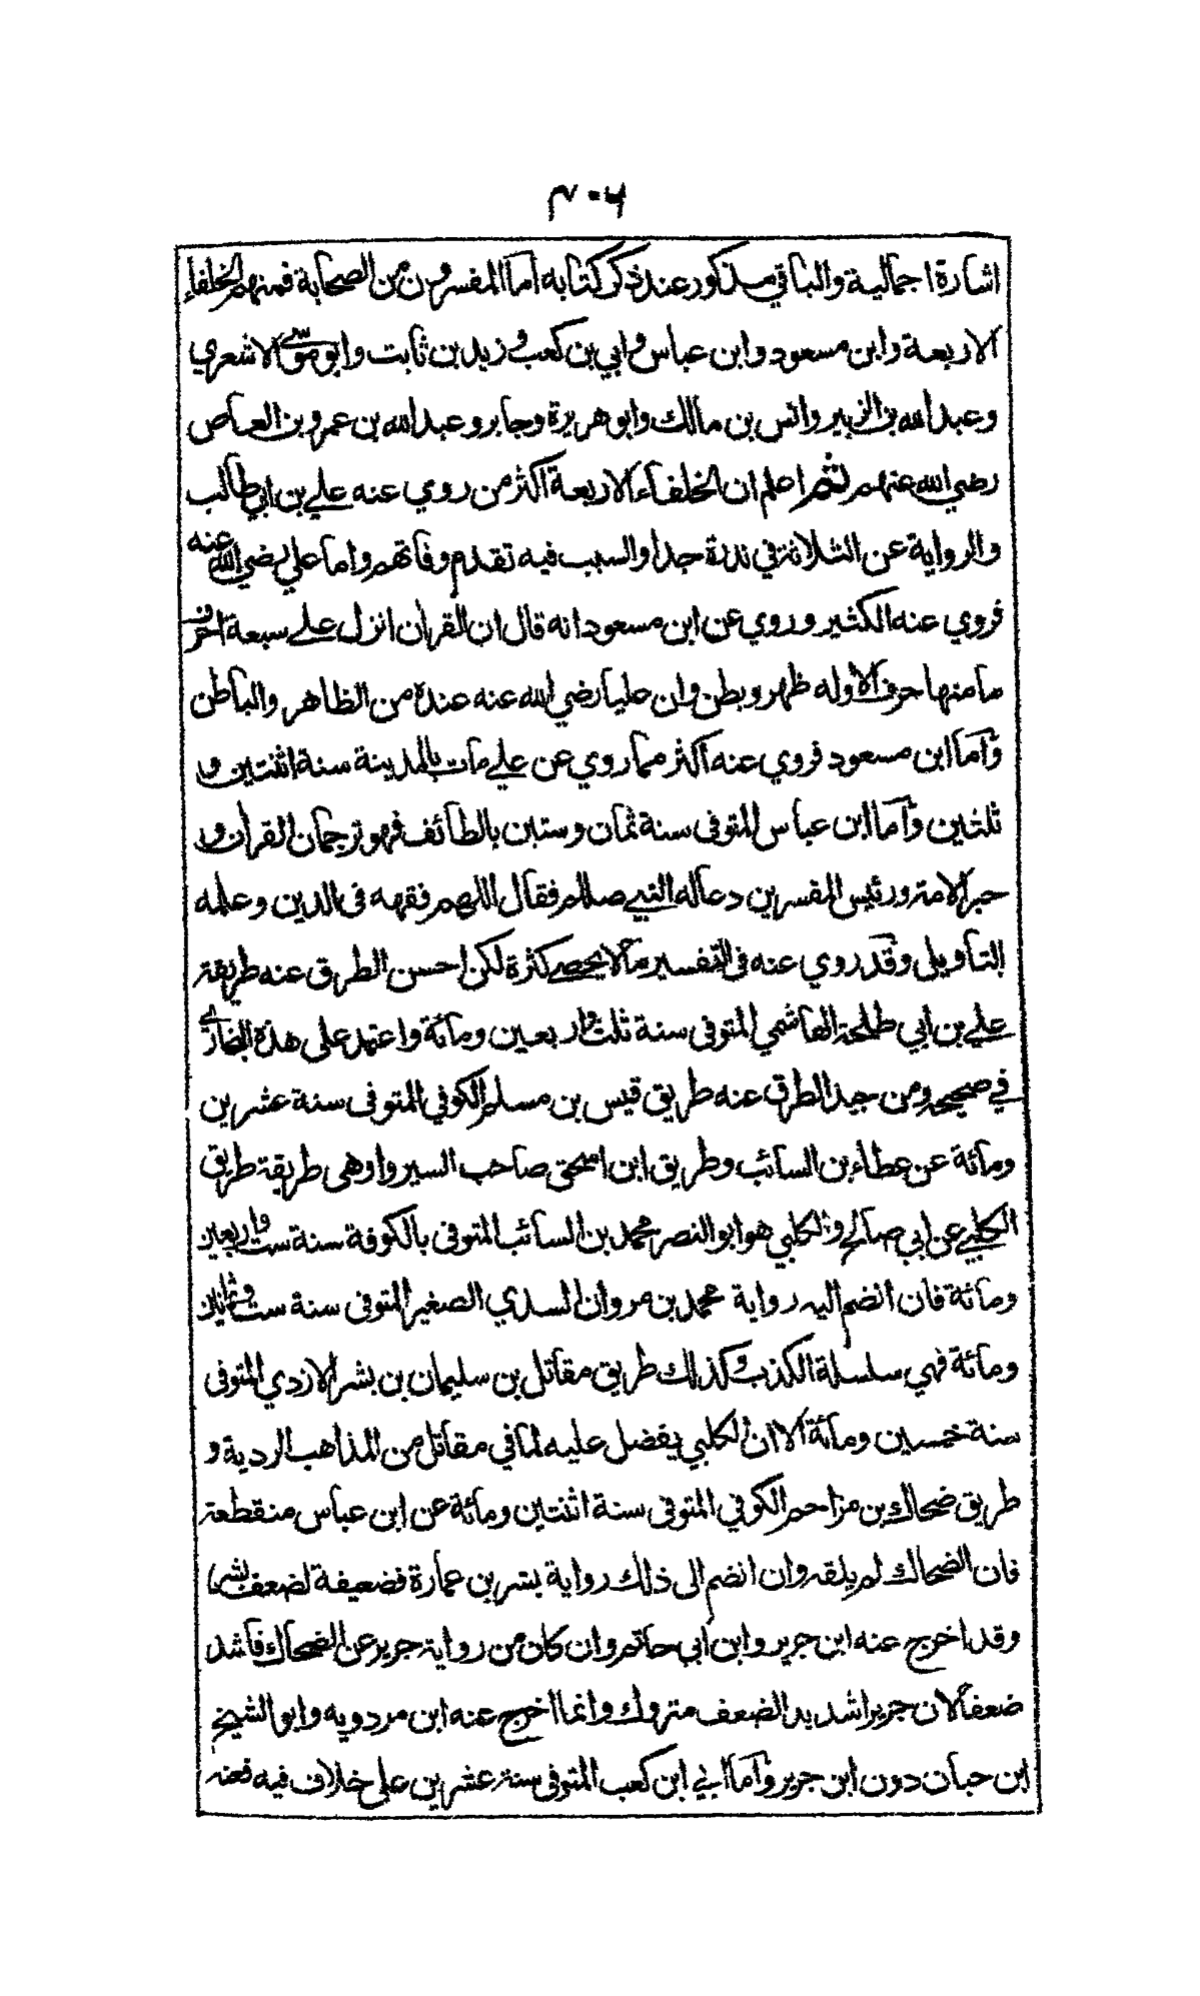 ٤٠٦
اشارة اجمالية والباقي مذكور عند ذكر كتابه اما المفسرون من الصحابة فمنهم الخلفاء
الاربعة وابن مسعود وابن عباس وابي بن كعب وزيد بن ثابت وابو موسى الاشعري
وعبد الله بن الزبير وانس بن مالك وابو هريرة وجابر وعبد الله بن عمرو بن العاص
رضي الله عنهم ثم اعلم ان الخلفاء الاربعة اكثر من روي عنه علي بن ابي طالب
والرواية عن الثلاثة في ندرة جدا والسبب فيه تقدم وفاتهم واما علي رضي الله عنه
فروي عنه الكثير وروي عن ابن مسعود انه قال ان القرآن انزل على سبعة احرف
ما منها حرف الا وله ظهر وبطن وان عليا رضي الله عنه عنده من الظاهر والباطن
واما ابن مسعود فروي عنه اكثر مما روي عن علي مات بالمدينة سنة اثنتين و
ثلثين واما ابن عباس المتوفى سنة ثمان وستين بالطائف فهو ترجمان القرآن و
حبر الامة ورئيس المفسرين دعا له النبي صلعم فقال اللهم فقهه في الدين وعلمه
التاويل وقد روي عنه في التفسير ما لا يحصى كثرة لكن احسن الطرق عنه طريقة
علي بن ابي طلحة الهاشمي المتوفى سنة ثلث واربعين ومائة واعتمد على هذه البخاري
في صحيحه ومن جيد الطرق عنه طريق قيس بن مسلم الكوفي المتوفى سنة عشرين
ومائة عن عطاء بن السائب وطريق ابن اسحق صاحب السير واوهى طريقة طريق
الكلبي عن ابي صالح والكلبي هو ابو النصر محمد بن السائب المتوفى بالكوفة سنة ست واربعين
ومائة فان انضم اليه رواية محمد بن مروان السدي الصغير المتوفى سنة ست وثمانين
ومائة فهي سلسلة الكذب وكذلك طريق مقاتل بن سليمان بن بشر الازدي المتوفى
سنة خمسين ومائة الا ان الكلبي يفضل عليه لما في مقاتل من المذاهب الردية و
طريق ضحاك بن مزاحم الكوفي المتوفى سنة اثنتين ومائة عن ابن عباس منقطعة
فان الضحاك لم يلقه وان انضم الى ذلك رواية بشر بن عمارة فضعيفة لضعف بشر
وقد اخرج عنه ابن جرير وابن ابي حاتم وان كان من رواية جرير عن الضحاك فاشد
ضعفا لان جريرا شديد الضعف متروك وانما اخرج عنه ابن مردويه وابو الشيخ
ابن حبان دون ابن جرير واما ابي ابن كعب المتوفى سنة عشرين على خلاف فيه فعنه